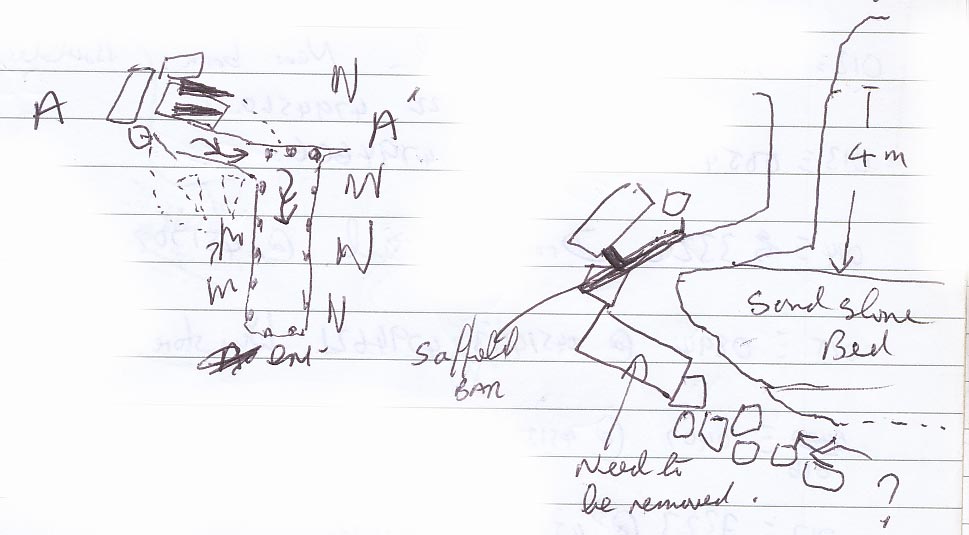 N
A
A'
N
N
N
m
m
?
4 m
Sandstone
Bed
Saffield
BAR
Need to
be removed.
?